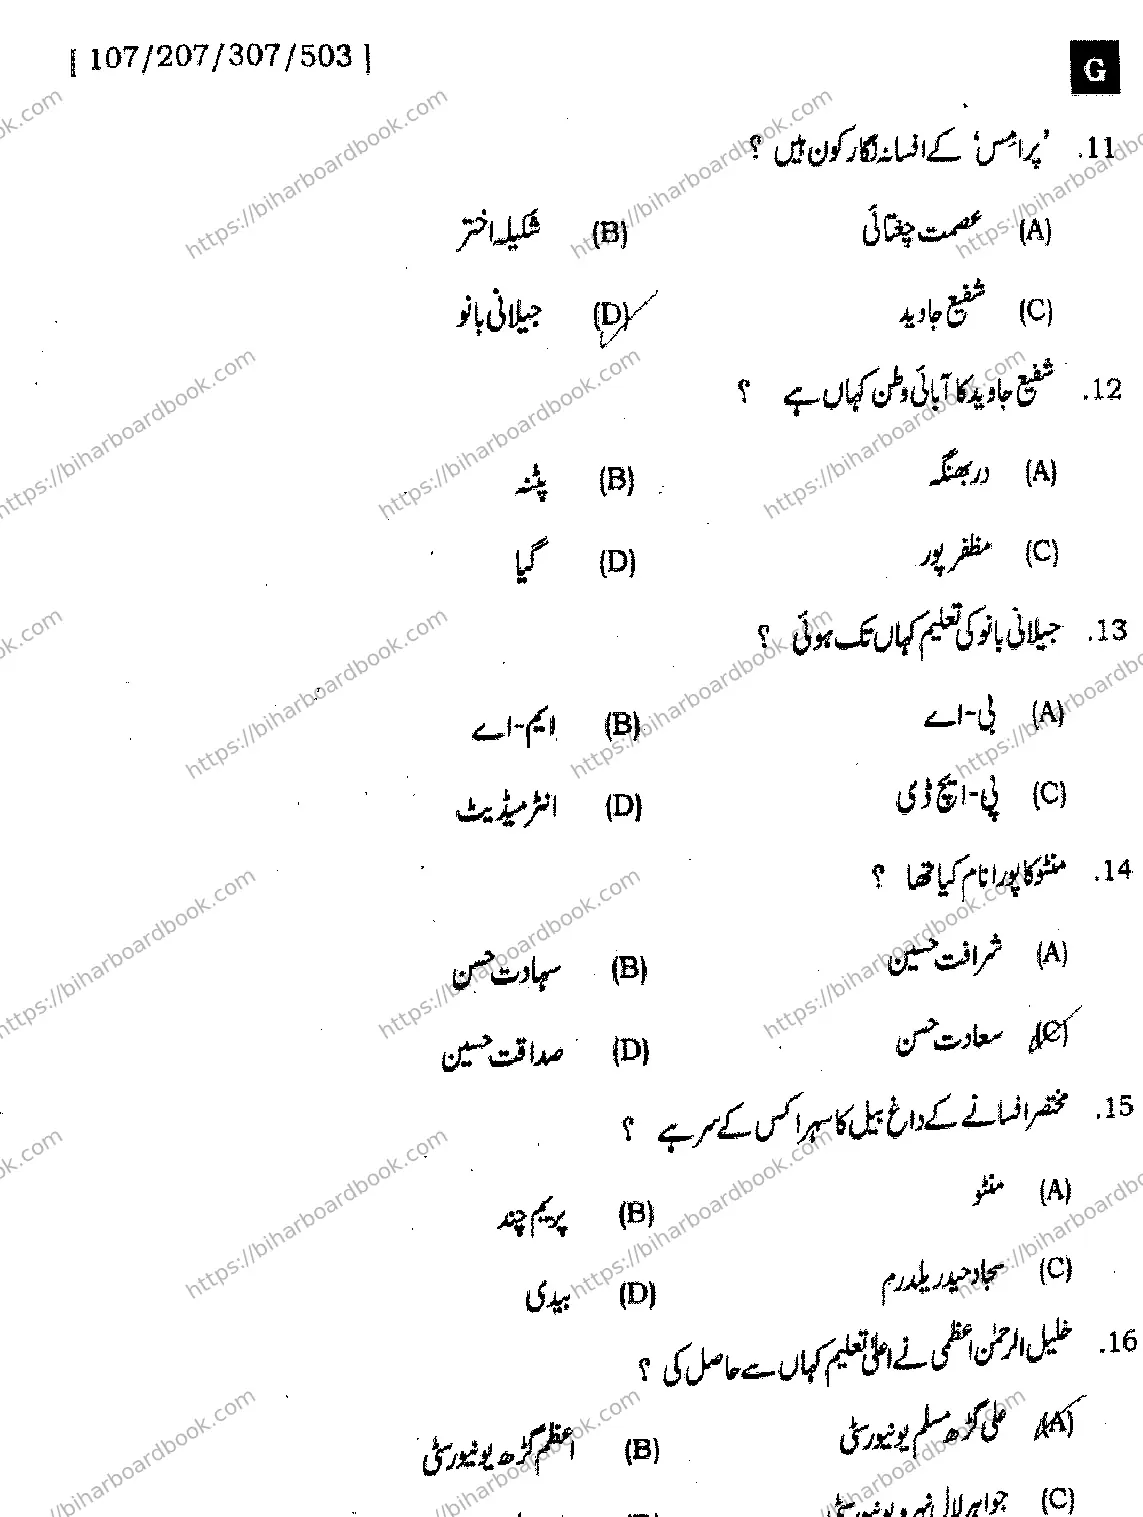 [ 107/207/307/503 ]
G
11. ’پرامس‘ کے افسانہ نگار کون ہیں ؟
(A) عصمت چغتائی (B) شکیلہ اختر
(C) شفیع جاوید (D) جیلانی بانو
12. شفیع جاوید کا آبائی وطن کہاں ہے ؟
(A) دربھنگہ (B) پٹنہ
(C) مظفر پور (D) گیا
13. جیلانی بانو کی تعلیم کہاں تک ہوئی ؟
(A) بی-اے (B) ایم-اے
(C) پی-ایچ ڈی (D) انٹرمیڈیٹ
14. منٹو کا پورا نام کیا تھا ؟
(A) شرافت حسین (B) سہادت حسن
(C) سعادت حسن (D) صداقت حسین
15. مختصر افسانے کے داغ بیل کا سہرا کس کے سر ہے ؟
(A) منٹو (B) پریم چند
(C) سجاد حیدر یلدرم (D) بیدی
16. خلیل الرحمٰن اعظمی نے اعلیٰ تعلیم کہاں سے حاصل کی ؟
(A) علی گڑھ مسلم یونیورسٹی (B) اعظم گڑھ یونیورسٹی
(C) جواہر لال نہرو یونیورسٹی
https://biharboardbook.com